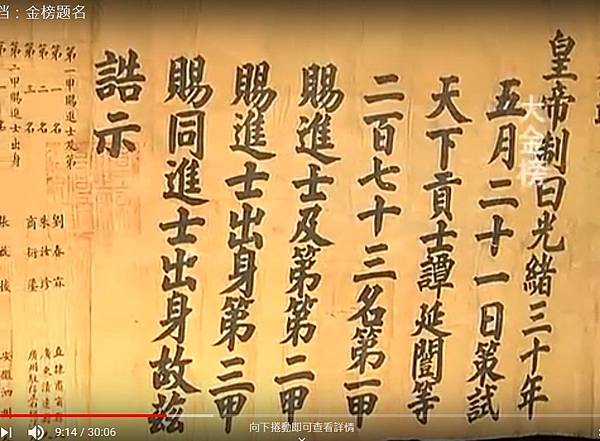 ：金榜题名
皇帝制曰光緒三十年
五月二十一日策試
天下貢士譚延闓等
二百七十三名第一甲
賜進士及第第二甲
賜進士出身第三甲
賜同進士出身故茲
誥示
大金榜
第一甲賜進士及第
第一名 劉春霖 直隸肅
第二名 朱汝珍 廣東清遠
第三名 商衍鎏 廣州駐防
第二甲賜進士出身
第一名 張啟後 安徽泗州
9:14 / 30:06
向下捲動即可查看詳情